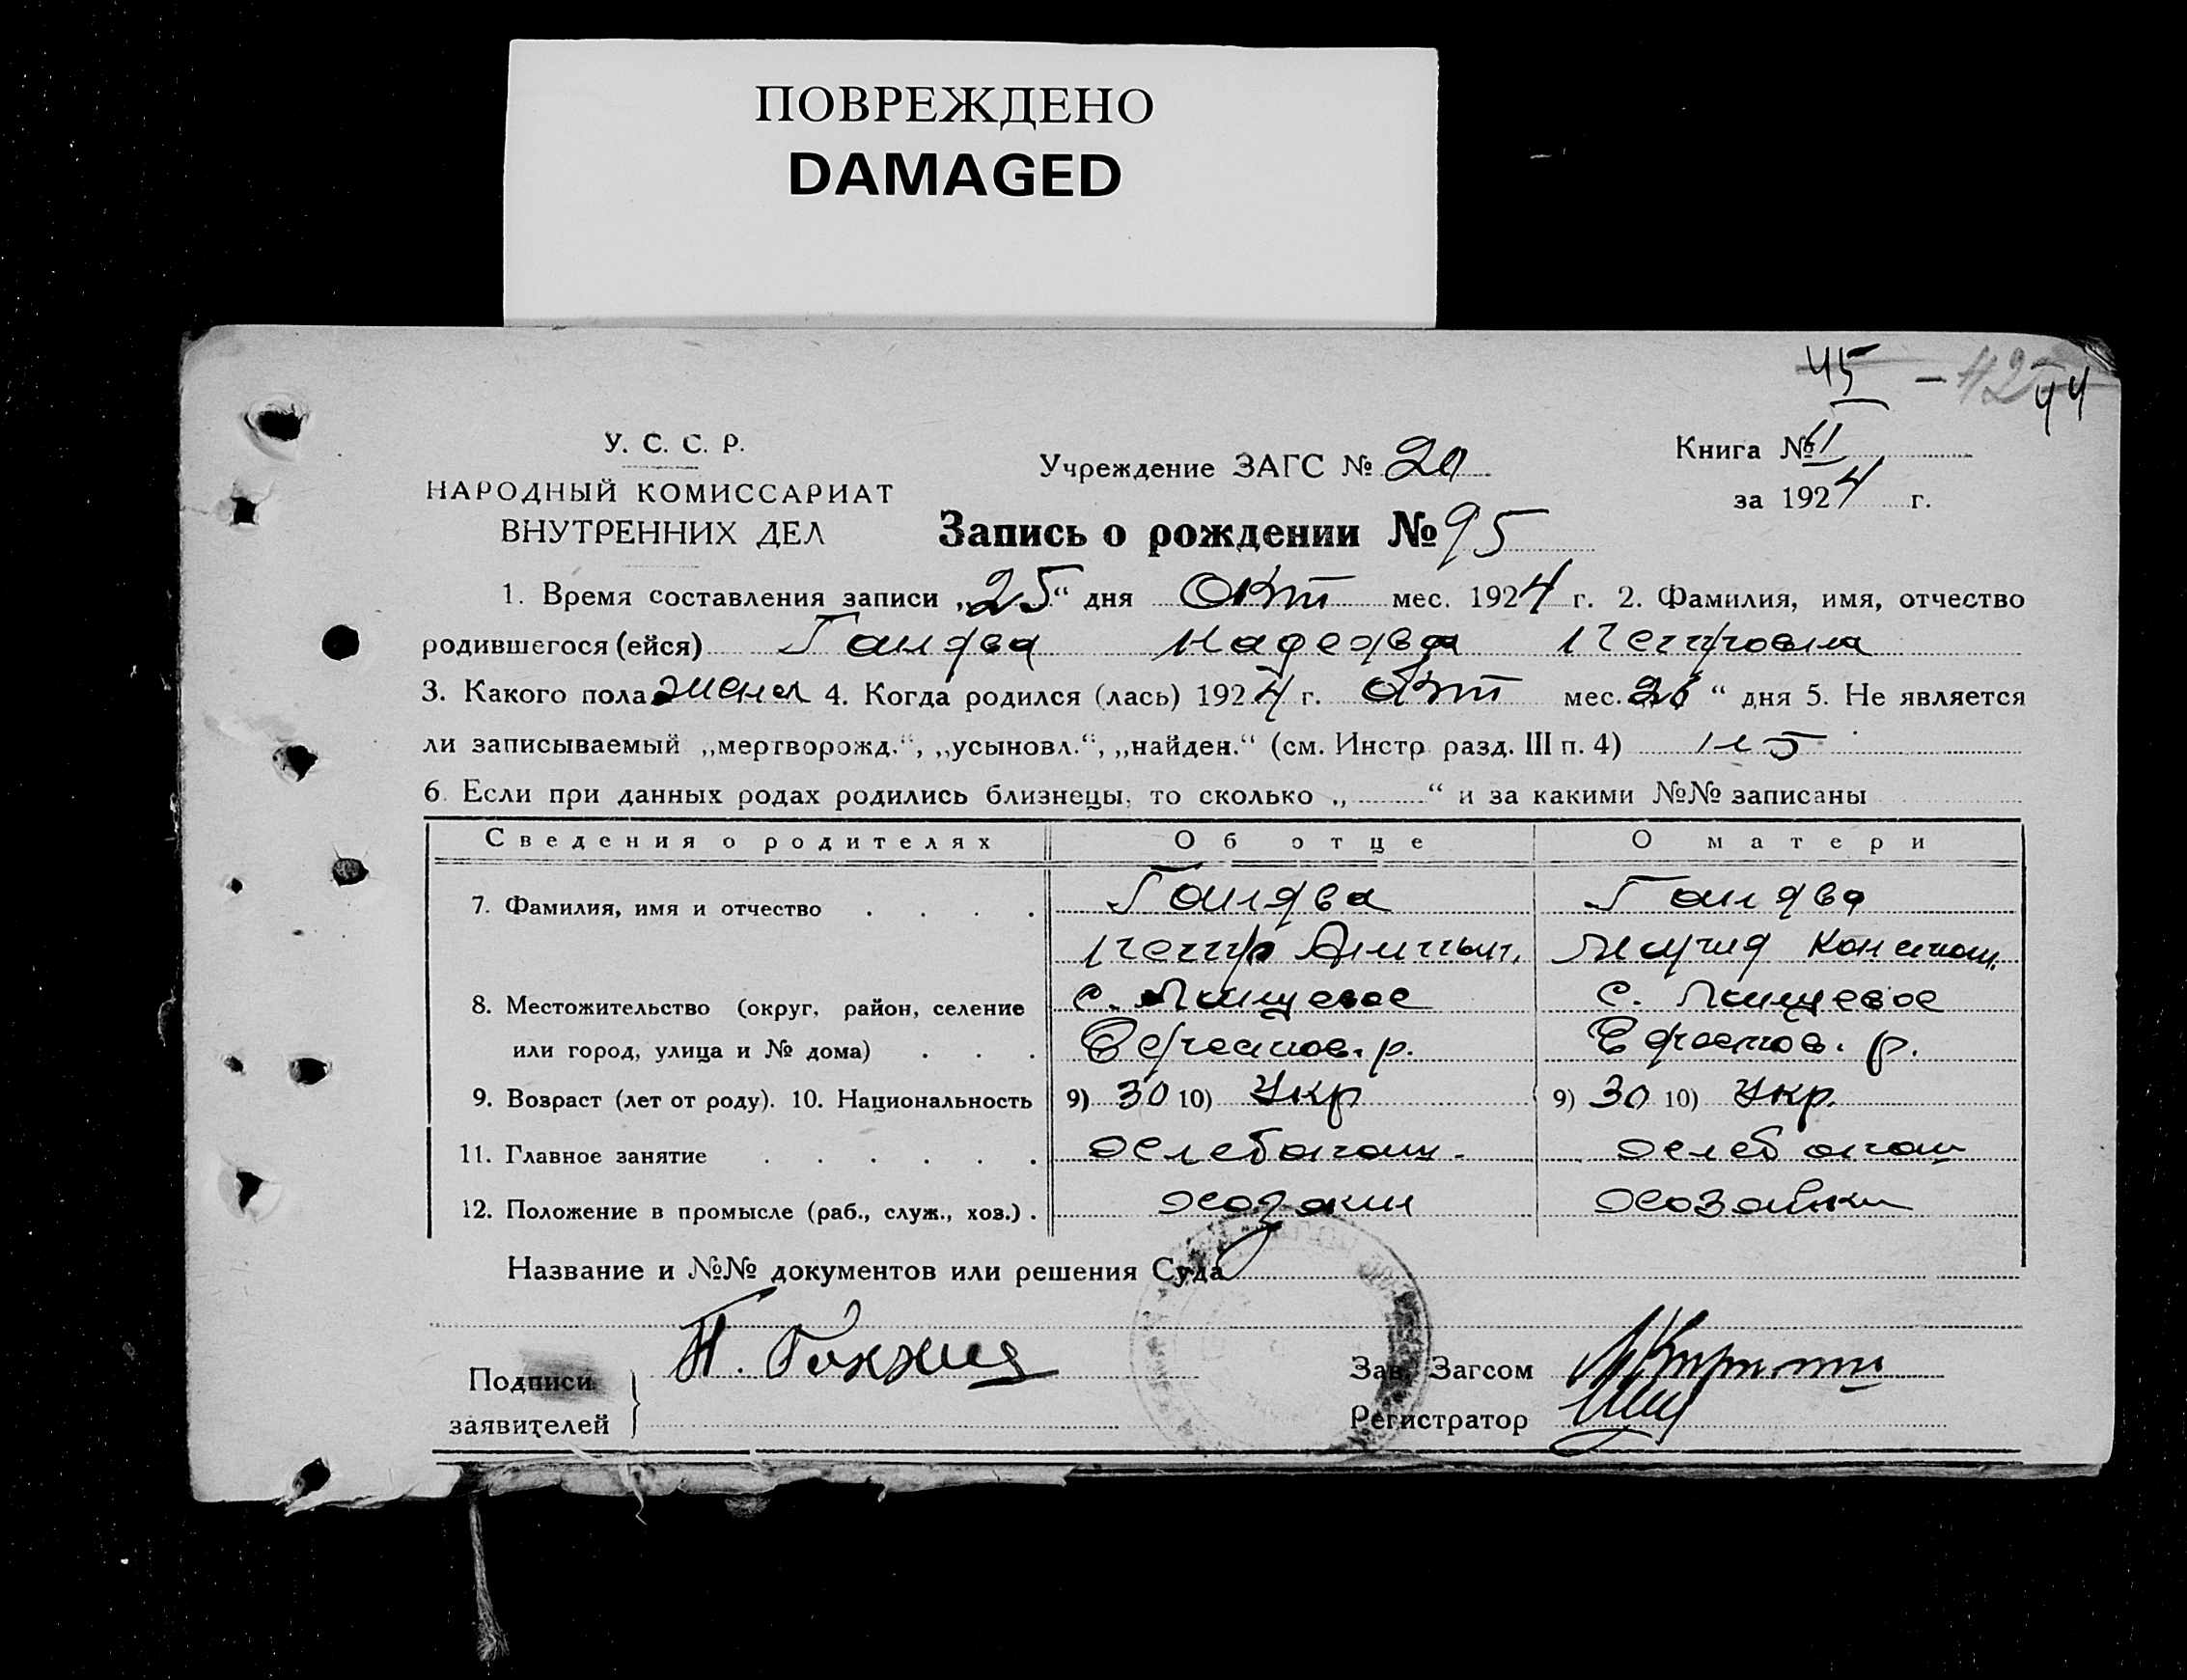 ПОВРЕЖДЕНО
DAMAGED
45 – 42 44
У. С. С. Р.
НАРОДНЫЙ КОМИССАРИАТ
ВНУТРЕННИХ ДЕЛ
Учреждение ЗАГС № 20
Книга № II
за 1924 г.
Запись о рождении № 95
1. Время составления записи „25“ дня Окт мес. 1924 г. 2. Фамилия, имя, отчество
родившегося (ейся) Надежда Петровна
3. Какого пола женск 4. Когда родился (лась) 1924 г. Окт мес. “ дня 5. Не является
ли записываемый „мертворожд.“, „усыновл.“, „найден.“ (см. Инстр. разд. III п. 4) нет
6. Если при данных родах родились близнецы, то сколько „ “ и за какими №№ записаны
Сведения о родителях Об отце О матери
7. Фамилия, имя и отчество
Петр Мария Констан.
8. Местожительство (округ, район, селение с. Лищевое с. Лищевое
или город, улица и № дома) р. р.
9. Возраст (лет от роду). 10. Национальность 9) 30 10) Укр 9) 30 10) Укр.
11. Главное занятие хлебопаш. хлебопаш
12. Положение в промысле (раб., служ., хоз.) хозяин хозяйка
Название и №№ документов или решения Суда
Подписи П.
заявителей
Зав. Загсом
Регистратор